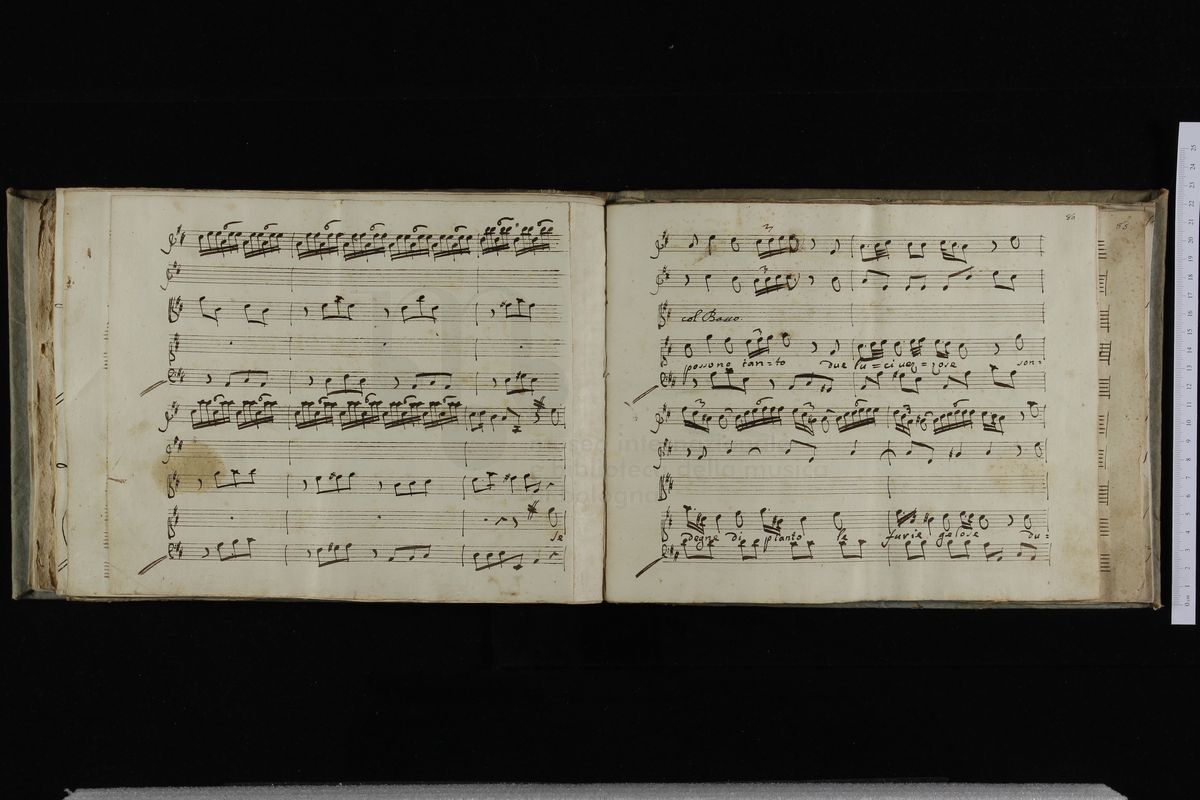 se
86
85
3
3
col Basso.
3
possono tan=to due lu=ci vez=zose son=
degne di pianto le furie gelose du=
museo internazionale
e biblioteca della musica
di bologna
0 cm 1 2 3 4 5 6 7 8 9 10 11 12 13 14 15 16 17 18 19 20 21 22 23 24 25